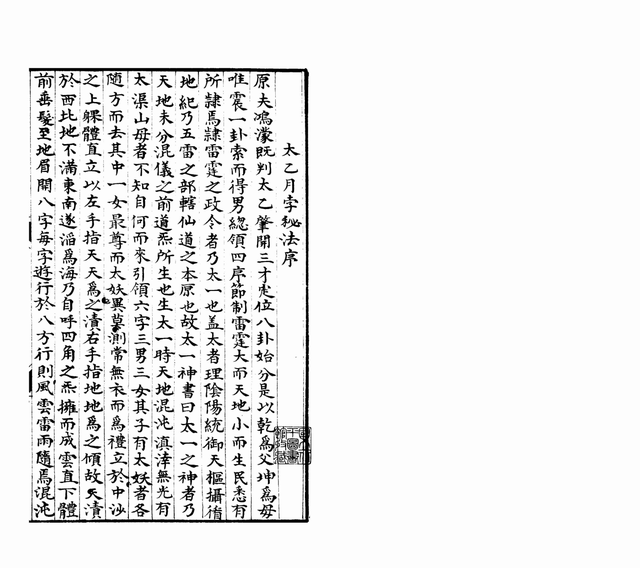 太乙月孛秘法序
原夫鴻濛既判太乙肇開三才定位八卦始分是以乾為父坤為母
唯震一卦索而得男緫領四序節制雷霆大而天地小而生民悉有
所隷焉隷雷霆之政令者乃太一也盖太者理陰陽統御天樞攝循
地紀乃五雷之部轄仙道之本原也故太一神書曰太一之神者乃
天地未分混儀之前道炁所生也生太一時天地混沌滇涬無光有
太渠山母者不知自何而來引領六字三男三女其子有太妖者各
隨方而去其中一女最尊而太妖異莫測常無衣而為禮立於中沙
之上躶體直立以左手指天天為之漬右手指地地為之傾故天漬
於西北地不滿東南遂滔為海乃自呼四角之炁擁而成雲直下體
前垂髮至地眉開八字每字遊行於八方行則風雲雷雨隨焉混沌